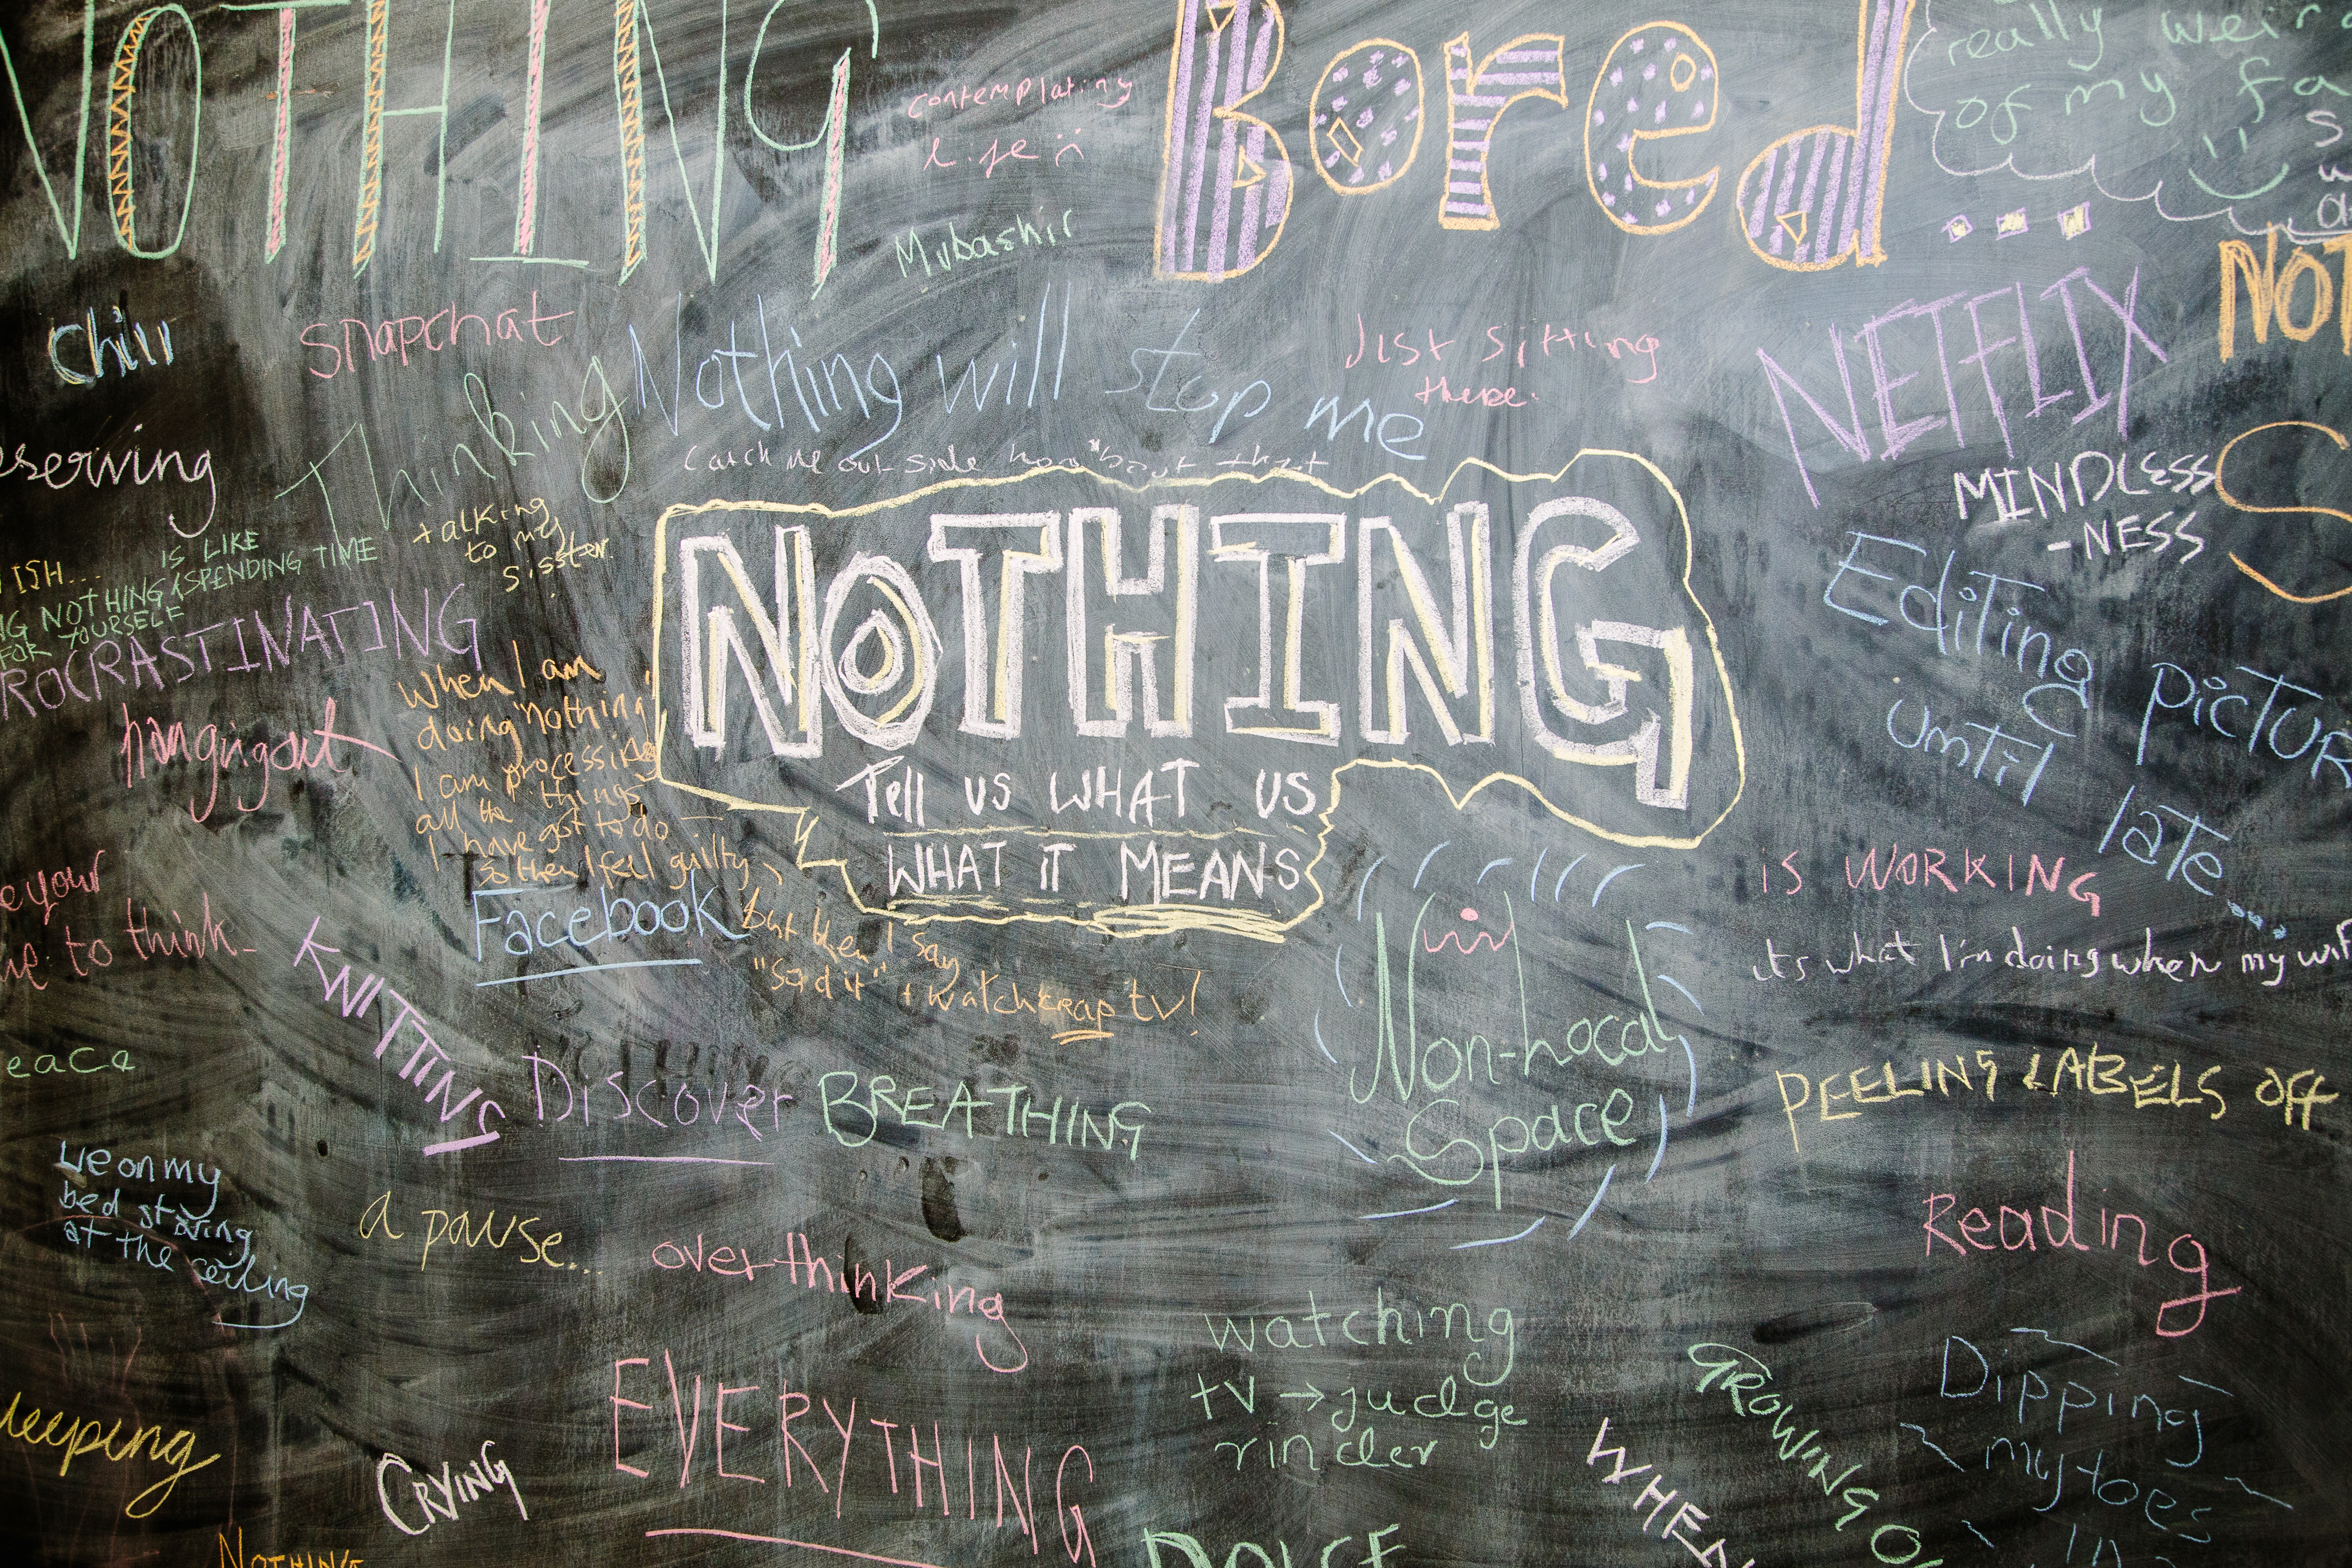 NOTHING
contemplating
life
Mubashir
Bored...
really weir
of my fa
NOT
Chill
Snapchat
Thinking
Nothing will stop me
Just sitting
there.
NETFLIX
MINDLESS
-NESS
serving
Catch me out side how "bout that
talking
to my
sisster.
ISH...
IS LIKE
NG NOTHING (SPENDING TIME
FOR YOURSELF
ROCRASTINATING
hangigout
When I am
doing "nothing"
I am processing
all the things
I have got to do -
so then I feel guilty,
but then I say
"Sod it" + watch crap tv!
NOTHING
Tell US WHAT US
WHAT iT MEANS
Editing pictur
until late...
e your
to think-
Facebook
IS WORKING
its what I'm doing when my wif
KNITTING
Non-Local
Space
PEELING LABELS OFF
eace
Discover
BREATHING
Lie on my
bed staring
at the ceiling
a pause...
overthinking
Reading
watching
tv → judge
rinder
EVERYTHING
CRYING
leeping
GROWING
WHEN
Dipping
my toes
in
NOTHING